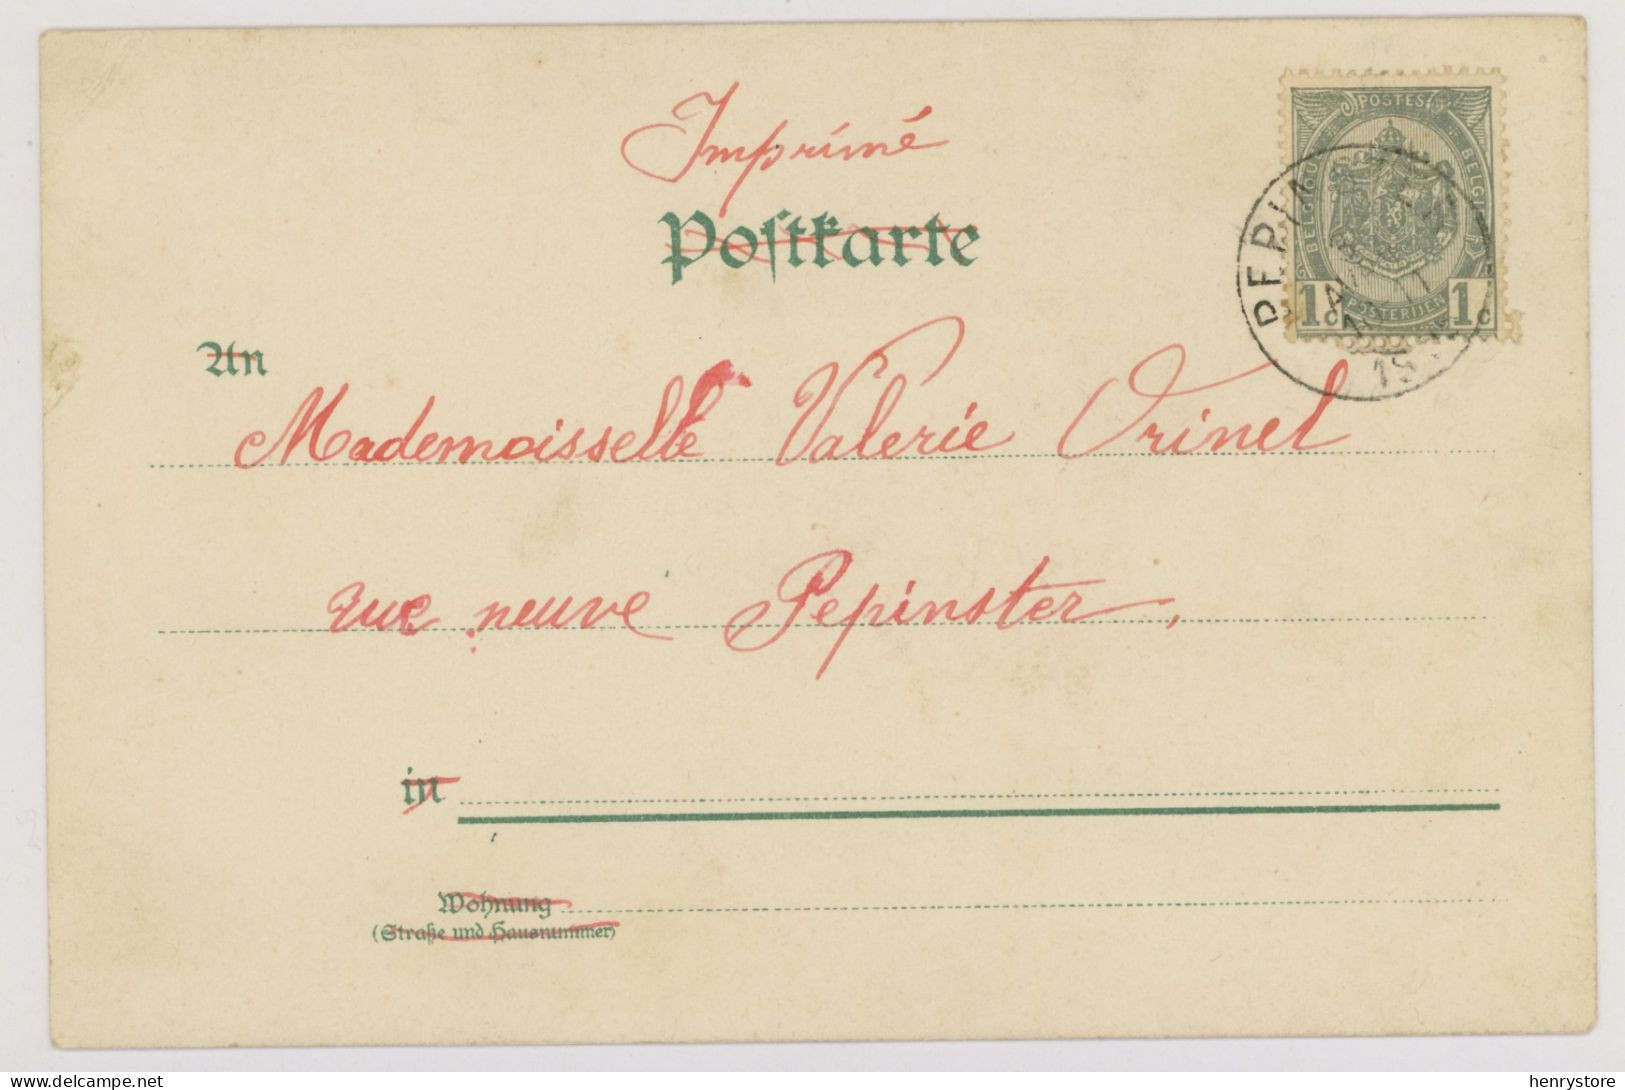 Imprimé
Postkarte
POSTES
BELGIQUE BELGIË
1c POSTERIJEN 1c
PEPIN
An
Mademoisselle Valerie Orinel
rue neuve Pepinster,
in
Wohnung
(Straße und Hausnummer)
henrystore
delcampe.net